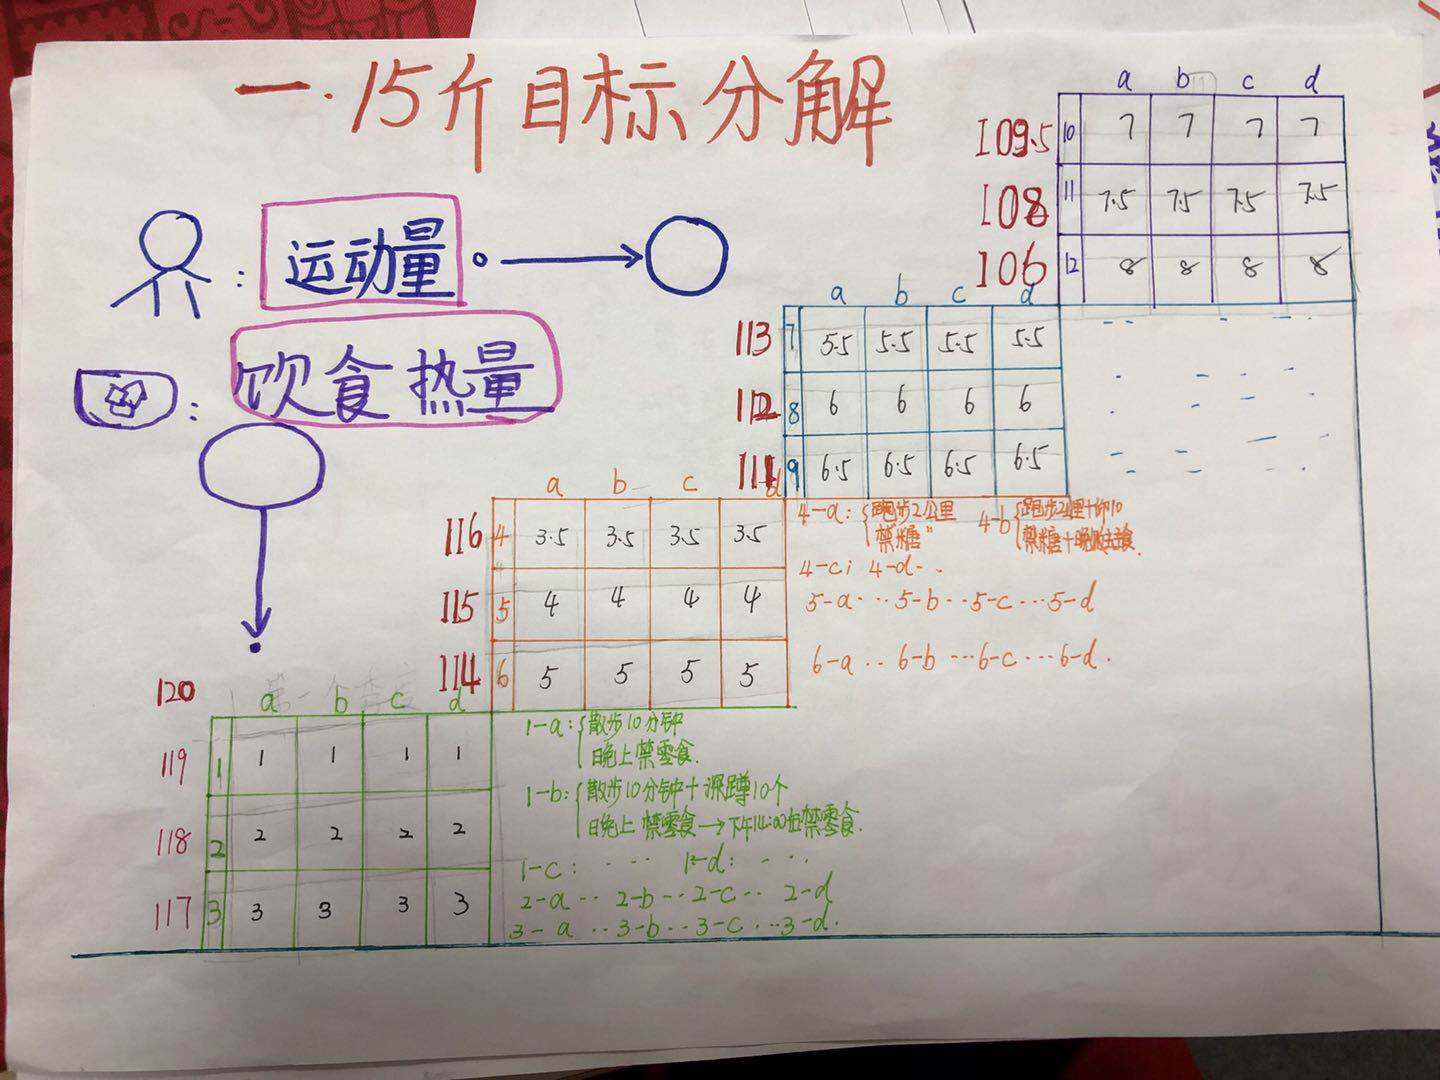 一·15斤目标分解
运动量
饮食热量
a b c d
109.5 10 7 7 7 7
108 11 7.5 7.5 7.5 7.5
106 12 8 8 8 8
a b c d
113 7 5.5 5.5 5.5 5.5
112 8 6 6 6 6
111 9 6.5 6.5 6.5 6.5
a b c d
116 4 3.5 3.5 3.5 3.5
115 5 4 4 4 4
114 6 5 5 5 5
4-a: 跑步2公里
禁糖"
4-b 跑步2公里+仰10
禁糖+晚
4-c; 4-d··
5-a···5-b··5-c···5-d
6-a··6-b···6-c···6-d.
120
a b c d
119 1 1 1 1 1
118 2 2 2 2 2
117 3 3 3 3 3
1-a: 散步10分钟
日晚上禁零食.
1-b: 散步10分钟+深蹲10个
日晚上禁零食→下午14:00后禁零食.
1-c: ··· 1-d: ···
2-a··2-b··2-c··2-d
3-a··3-b··3-c··3-d.